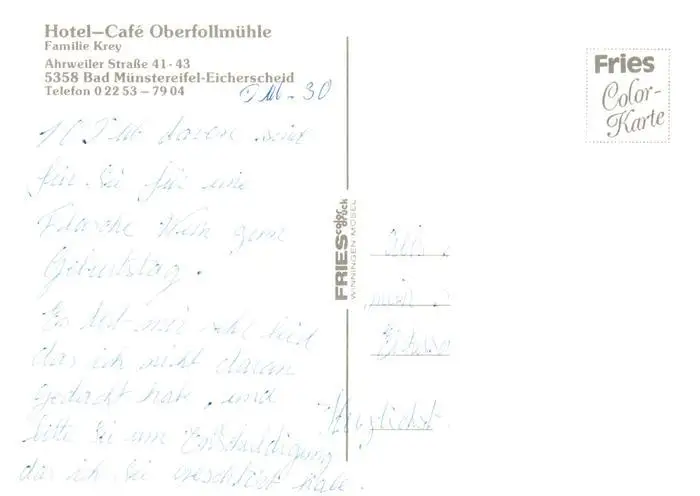 Hotel-Café Oberfollmühle
Familie Krey
Ahrweiler Straße 41 - 43
5358 Bad Münstereifel-Eicherscheid
Telefon 0 22 53 – 79 04
DM - 30
10 DM davon sind
für Sie für eine
Flasche Wein zum
Geburtstag.
Es tut mir sehr leid
das ich nicht daran
gedacht habe, und
bitte Sie um Entschuldigung
das ich Sie habe.
Herzlichst
FRIES color druck
WINNINGEN-MOSEL
Fries
Color-
Karte